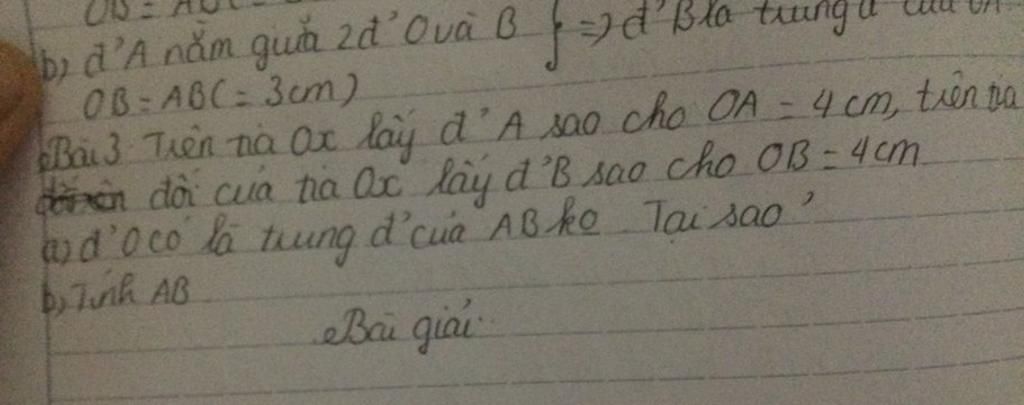 OB = AB
b) đ' A nằm giữa 2 đ' O và B } => đ' B là trung đ' của OA
OB = AB (= 3cm)
Bài 3 Trên tia Ox lấy đ' A sao cho OA = 4 cm, trên tia
đối của tia Ox lấy đ' B sao cho OB = 4 cm
a) đ' O có là trung đ' của AB ko Tại sao
b) Tính AB
Bài giải